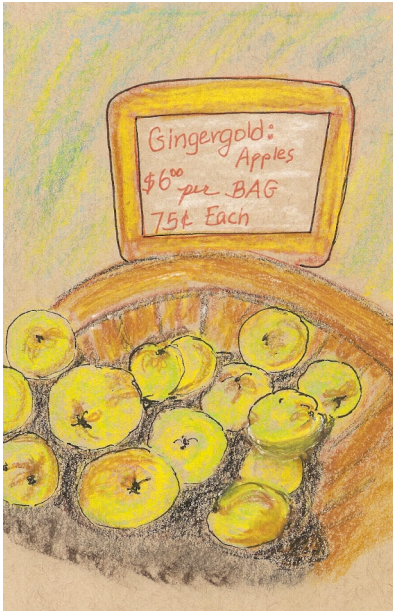 Gingergold:
Apples
$6⁰⁰ per BAG
75¢ Each